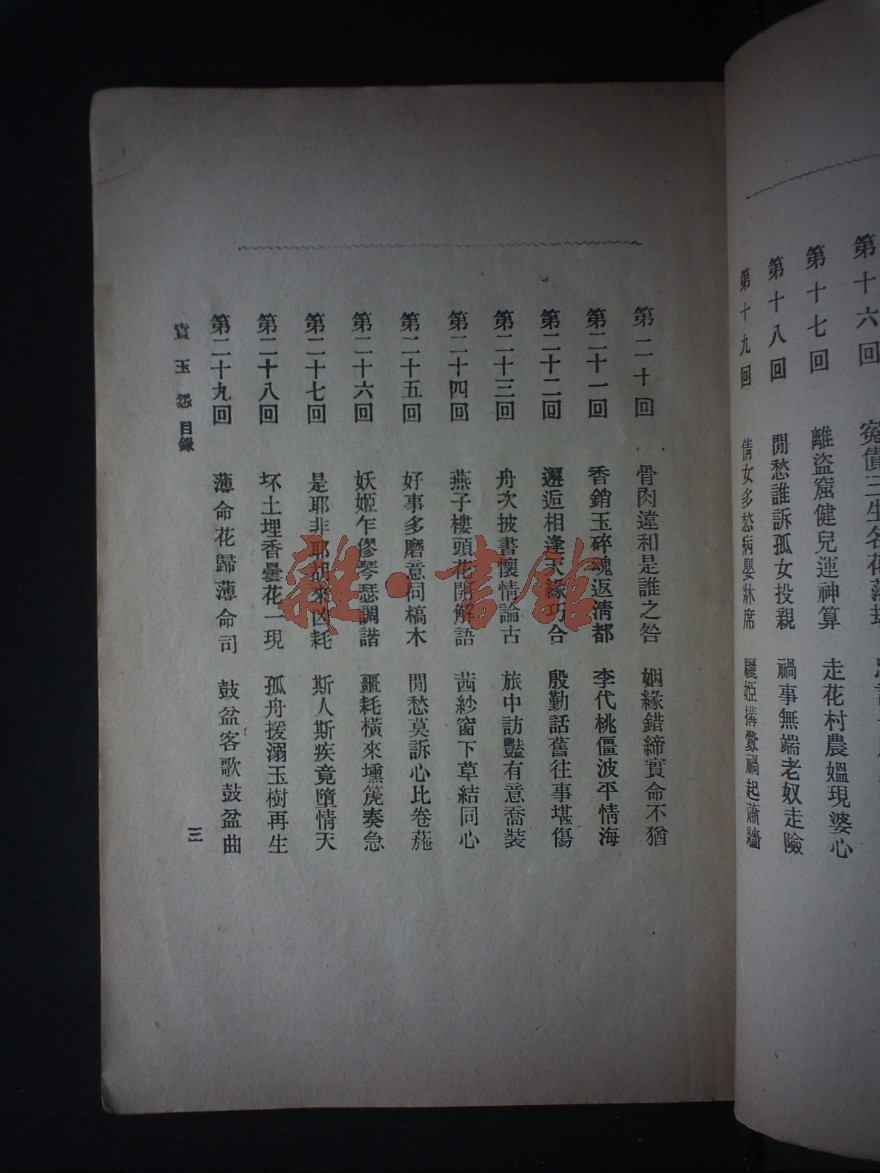 第十六回
第十七回　離盜窟健兒運神算　走花村農媼現婆心
第十八回　閒愁誰訴孤女投親　禍事無端老奴走險
第十九回　倩女多愁病嬰牀席　禍起蕭牆
第二十回　骨肉違和是誰之咎　姻緣錯締實命不猶
第二十一回　香銷玉碎魂返淸都　李代桃僵波平情海
第二十二回　邂逅相逢天緣巧合　殷勤話舊往事堪傷
第二十三回　舟次披書懷情論古　旅中訪豔有意喬裝
第二十四回　燕子樓頭花開解語　茜紗窗下草結同心
第二十五回　好事多磨意同槁木　閒愁莫訴心比卷葹
第二十六回　妖姬乍繆琴瑟調諧　噩耗橫來壎箎奏急
第二十七回　是耶非耶却來凶耗　斯人斯疾竟墮情天
第二十八回　坏土埋香曇花一現　孤舟援溺玉樹再生
第二十九回　薄命花歸薄命司　鼓盆客歌鼓盆曲
玉怨目錄
三
雜·書館